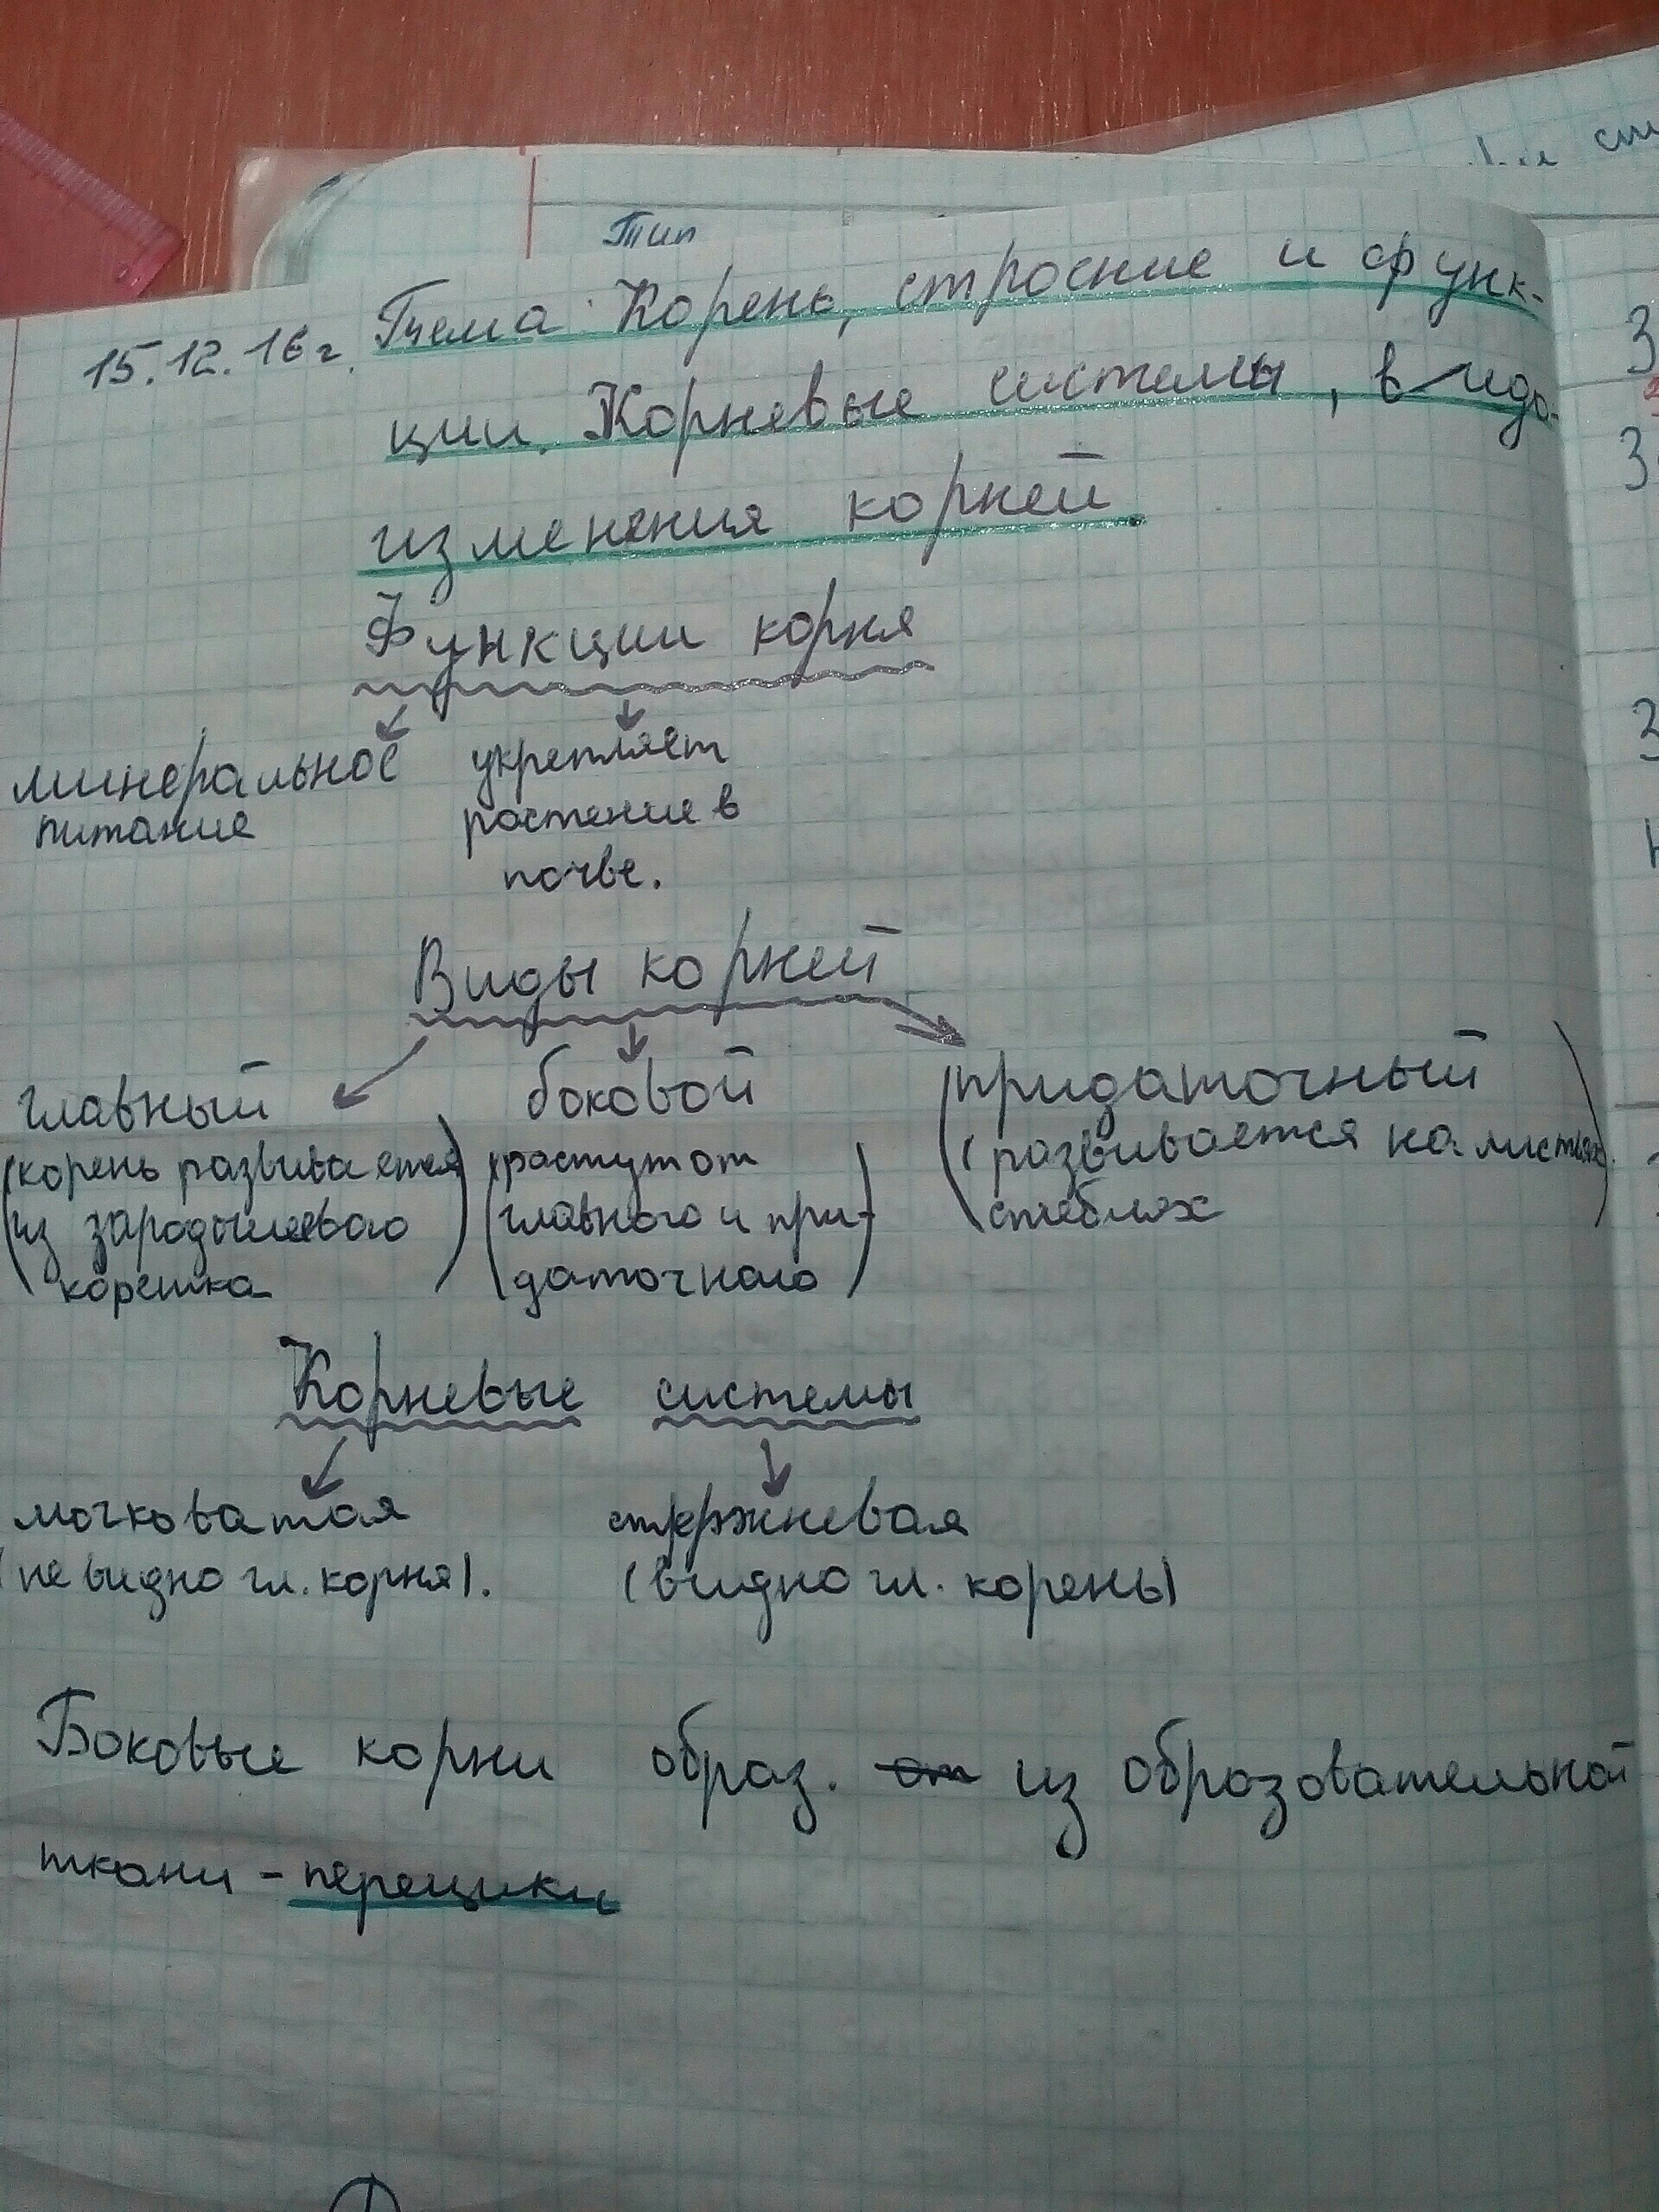 Тип
15.12.16г. Тема: Корень, строение и функ-
ции. Корневые системы, видо-
изменения корней.
Функции корня
минеральное укрепляет
питание растение в
почве.
Виды корней
главный боковой придаточный
(корень развивается (растут от (развивается на листьях
из зародышевого главного и при- стеблях)
корешка) даточного)
Корневые системы
мочковатая стержневая
(не видно гл. корня). (видно гл. корень)
Боковые корни образ. от из образовательной
ткани - перецикл